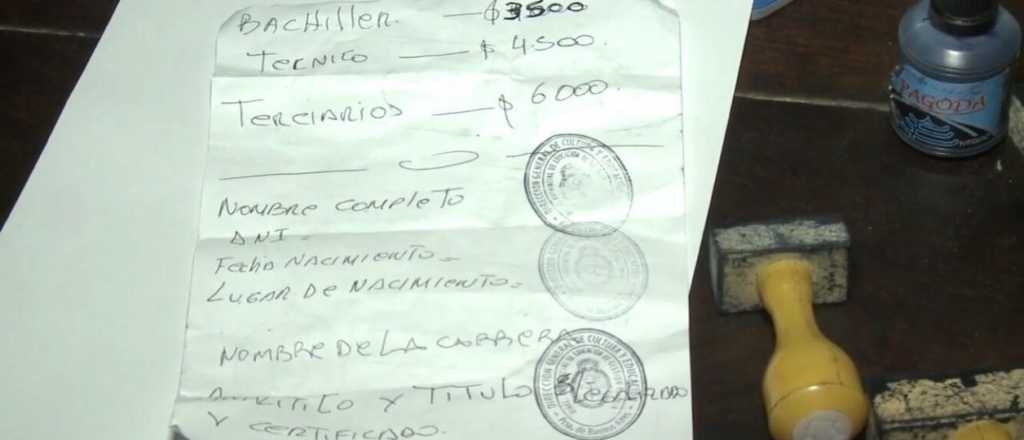 BACHILLER. — $3500
TECNICO — $ 4.500.
TERCIARIOS — $ 6000.
NOMBRE COMPLETO
DNI.
Fecha NACIMIENTO.
LUGAR DE NACIMIENTO.
NOMBRE DE LA CARRERA
Y TITULO
Y CERTIFICADO.
DIRECCION GENERAL DE CULTURA Y
DIRECCION GENERAL DE CULTURA Y EDUCACION
Pcia. de Buenos Aires
PAGODA